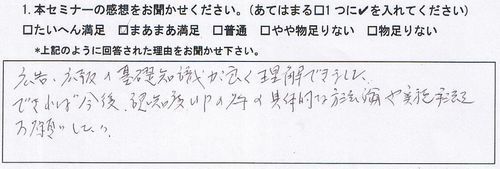 1. 本セミナーの感想をお聞かせください。(あてはまる□1つに✔を入れてください)
□たいへん満足 ☑まあまあ満足 □普通 □やや物足りない □物足りない
*上記のように回答された理由をお聞かせ下さい。
広告、広報の基礎知識が広く理解できました。
できれば今後、認知度UPの為の具体的な方法論や実施手法を
お願いしたい。